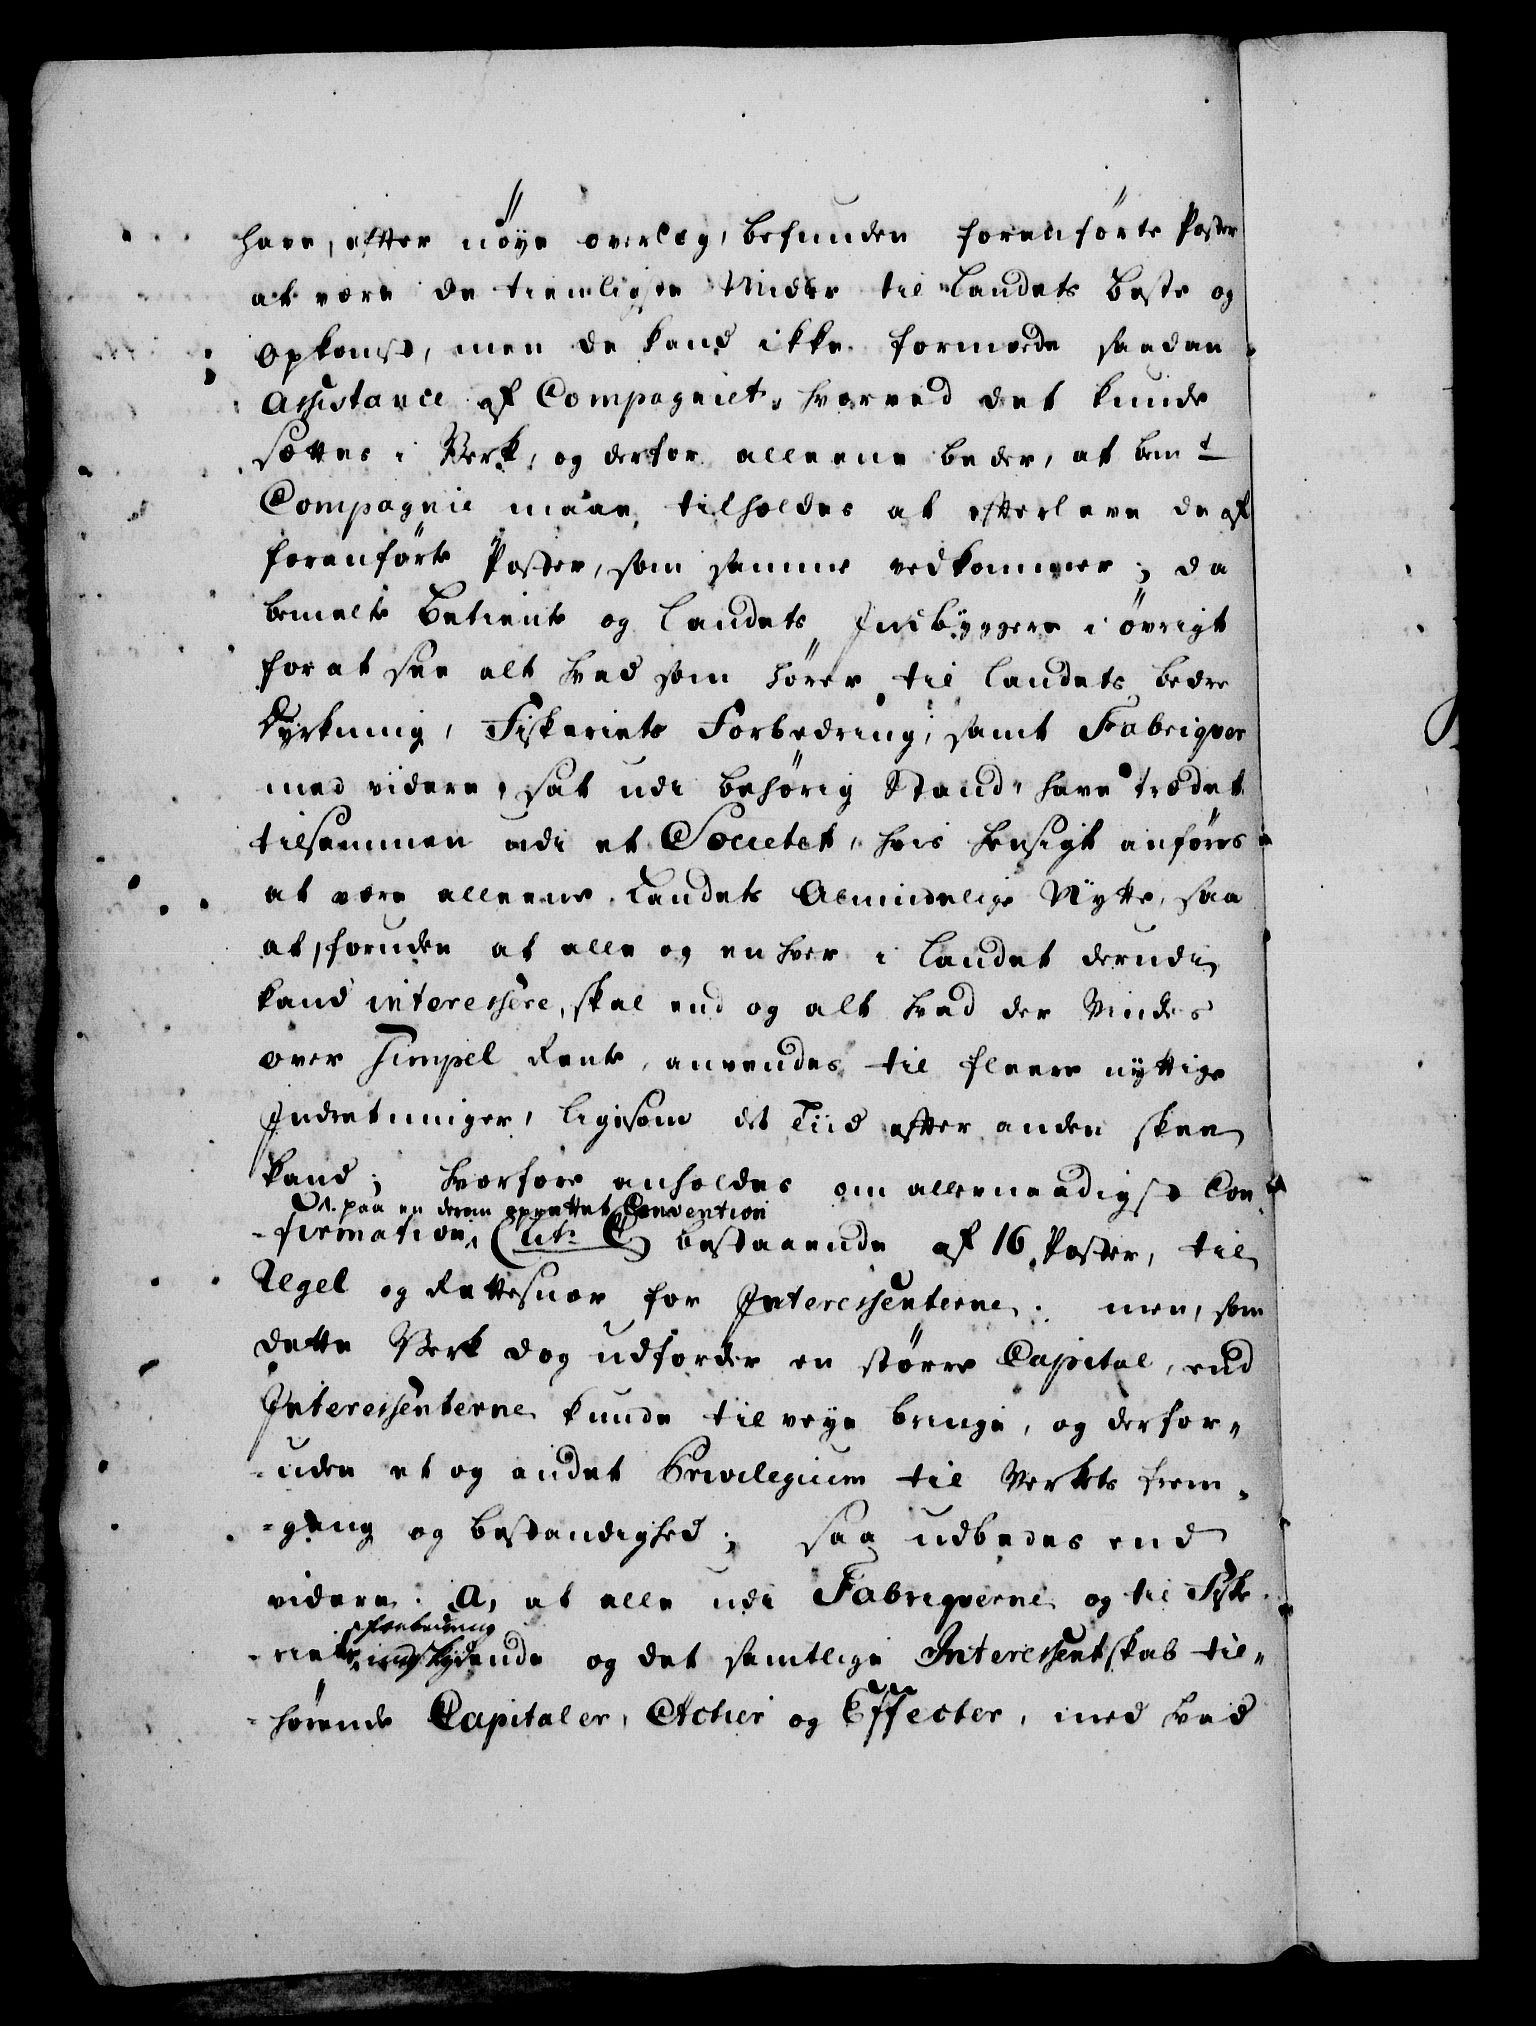 have, efter nöye overlæg, befunden foranförte Poster
at være de tienligste Midler til Landets Beste og
Opkomst, men de kand ikke formode saadan
Assistance af Compagniet, hvorved det kunde
sættes i Verk, og derfor alleene beder, at bemt
Compagnie maae tilholdes at efterleve de af
foranförte Poster, som samme vedkommer; da
bemelte Betiente og Landets Indbyggere i övrigt
for at see alt hvad som hörer til Landets bedre
Dyrkning, Fiskeriets Forbedring, samt Fabriqver
med videre, sat udi behörig Stand, have trædet
tilsammen udi et Societet, hvis hensigt anföres
at være alleene Landets Almindelige Nytte, saa
at, foruden at alle og enhver i Landet derudi
kand interessere, skal end og alt hvad der Vindes
over Simpel Rente, anvendes til fleere nyttige
Indretninger, ligesom det Tiid efter anden skee
kand; hvorfore anholdes om allernaadigst Con-
paa en derom oprettet Convention
-firmation, (Litr: C) bestaaende af 16 Poster, til
Regel og Rettesnor for Interessenterne: men, som
dette Verk dog udfordrer en större Capital, end
Interessenterne kunde tilveye bringe, og derfor-
-uden et og andet Privilegium til Verkets frem-
-gang og bestandighed; saa udbedes end
videre: a, at alle udi Fabriqverne og til Fiske-
Forbedring
-riets indskydende og det samtlige Interessentskab til-
-hörende Capitaler, Actier og Effecter, med hvad